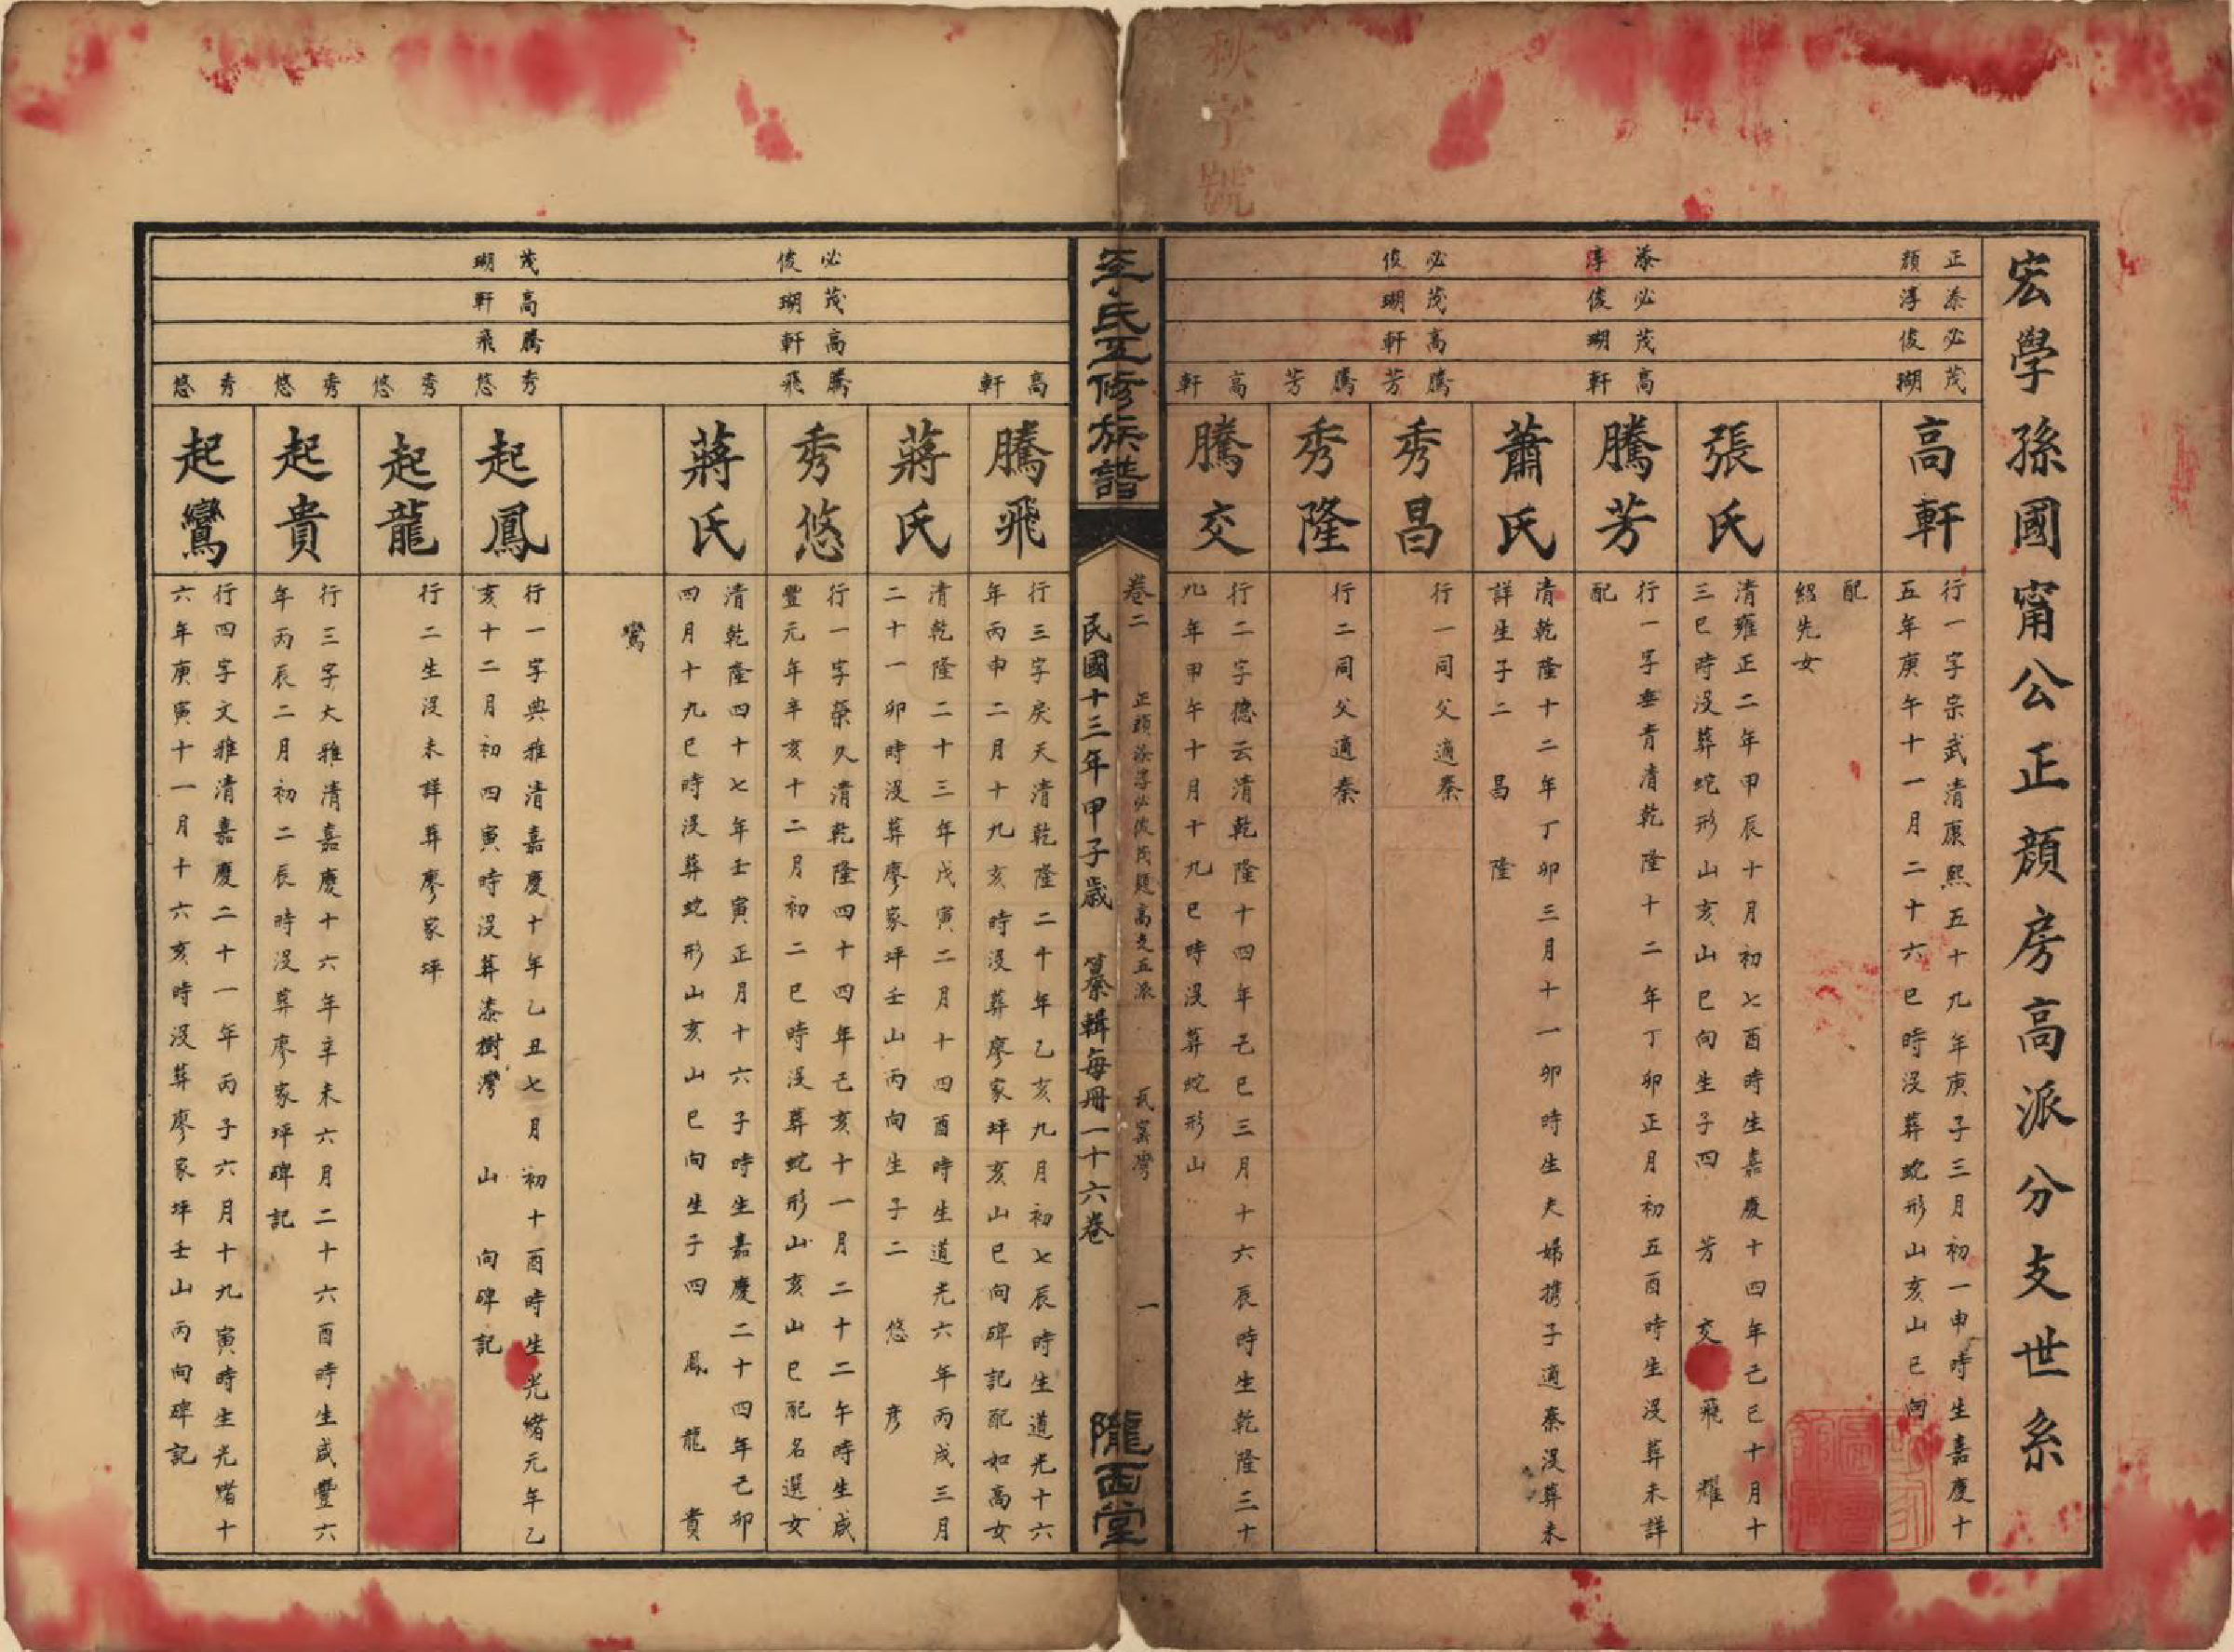 秋字號
宏學孫國甯公正顔房高派分支世系
正顔
添淳
必俊
茂瑚
高軒
行一字宗武清康熙五十九年庚子三月初一申時生嘉慶十
五年庚午十一月二十六巳時沒葬蛇形山亥山巳向
配
紹先女
張氏
清雍正二年甲辰十月初七酉時生嘉慶十四年己巳十月十
三巳時沒葬蛇形山亥山巳向生子四 芳 交 飛 耀
添淳
必俊
茂瑚
高軒
騰芳
行一字垂青清乾隆十二年丁卯正月初五酉時生沒葬未詳
配
蕭氏
清乾隆十二年丁卯三月十一卯時生夫婦携子適秦沒葬未
詳生子二 昌 隆
必俊
茂瑚
高軒
騰芳
秀昌
行一同父適秦
騰芳
秀隆
行二同父適秦
高軒
騰交
行二字德云清乾隆十四年己巳三月十六辰時生乾隆三十
九年甲午十月十九巳時沒葬蛇形山
李氏五修族譜
卷二 正顔添淳必俊茂題高之五派 瓦窰灣 一
民國十三年甲子歲 纂輯每冊一十六卷
隴西堂
高軒
騰飛
行三字戾天清乾隆二十年乙亥九月初七辰時生道光十六
年丙申二月十九亥時沒葬廖家坪亥山巳向碑記配如高女
蔣氏
清乾隆二十三年戊寅二月十四酉時生道光六年丙戌三月
二十一卯時沒葬廖家坪壬山丙向生子二 悠 彦
必俊
茂瑚
高軒
騰飛
秀悠
行一字榮久清乾隆四十四年己亥十一月二十二午時生咸
豐元年辛亥十二月初二巳時沒葬蛇形山亥山巳配名選女
蔣氏
清乾隆四十七年壬寅正月十六子時生嘉慶二十四年己卯
四月十九巳時沒葬蛇形山亥山巳向生子四 鳳 龍 貴
鸞
茂瑚
高軒
騰飛
秀悠
起鳳
行一字典雅清嘉慶十年乙丑七月初十酉時生光緒元年乙
亥十二月初四寅時沒葬漆樹灣 山 向碑記
秀悠
起龍
行二生沒未詳葬廖家坪
秀悠
起貴
行三字大雅清嘉慶十六年辛未六月二十六酉時生咸豐六
年丙辰二月初二辰時沒葬廖家坪碑記
秀悠
起鸞
行四字文雅清嘉慶二十一年丙子六月十九寅時生光緒十
六年庚寅十一月十六亥時沒葬廖家坪壬山丙向碑記